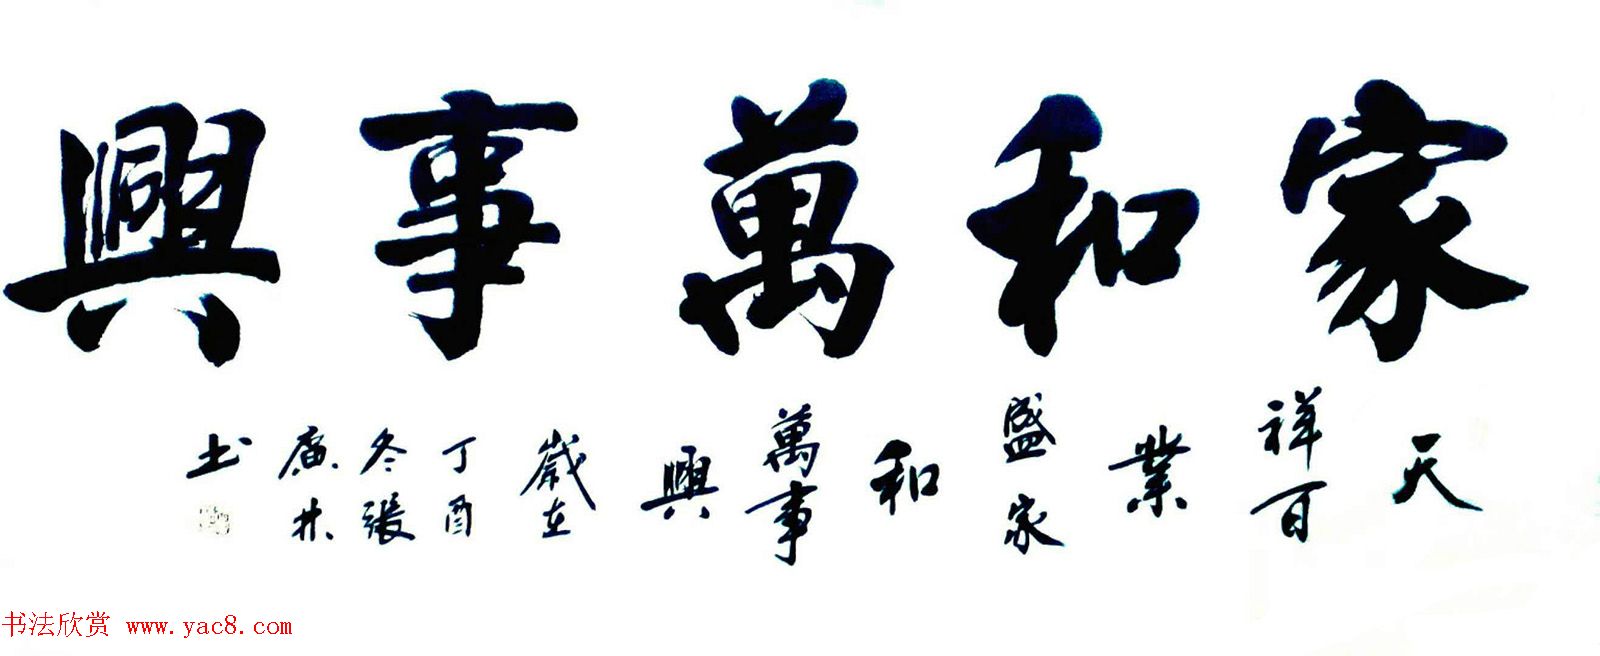 家和萬事興
天祥百業盛家和萬事興
歲在丁酉冬張廣林书
书法欣赏 www.yac8.com